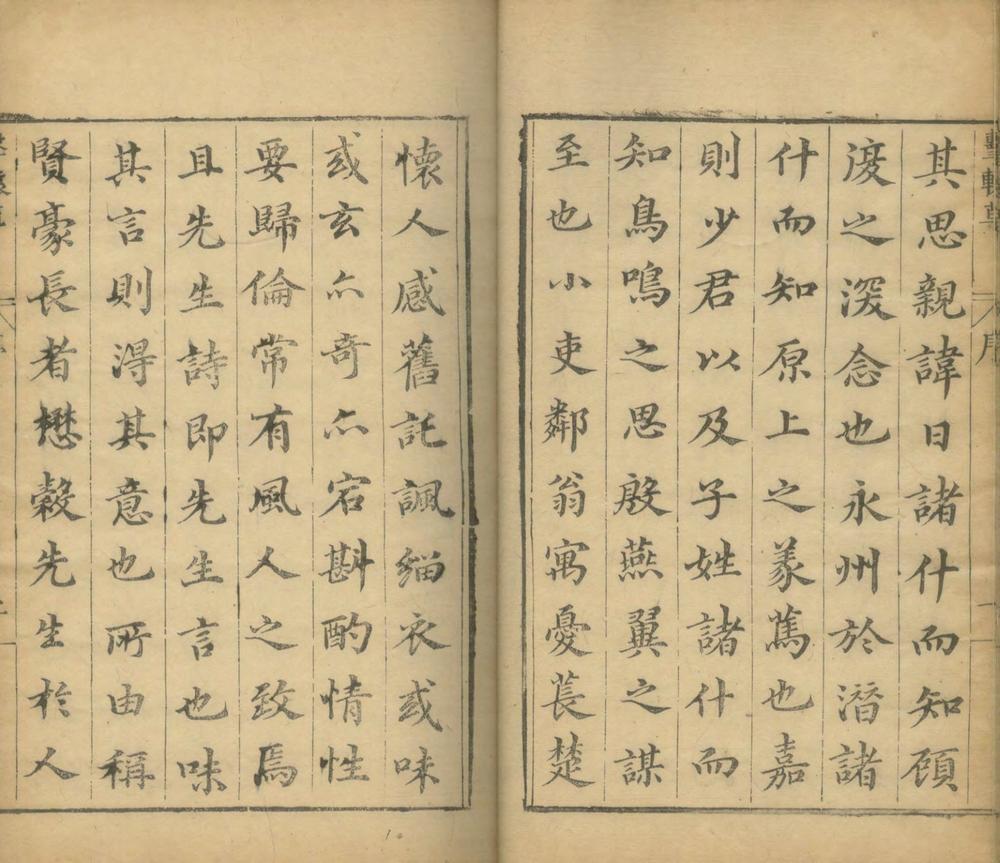 其思親諱日諸什而知顧
復之深念也永州於潛諸
什而知原上之義篤也嘉
則少君以及子姓諸什而
知鳥鳴之思殷燕翼之謀
至也小吏鄰翁寓憂萇楚
懷人感舊託諷緇衣或味
或玄亦奇亦宕斟酌情性
要歸倫常有風人之致焉
且先生詩即先生言也味
其言則得其意也所由稱
賢豪長者懋穀先生於人